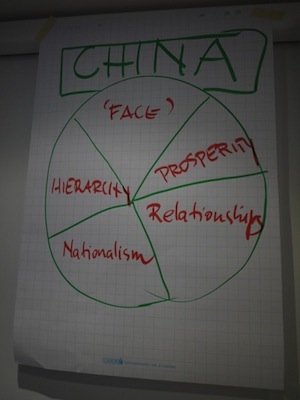 CHINA
('FACE')
PROSPERITY
HIERARCHY
Relationships
Nationalism